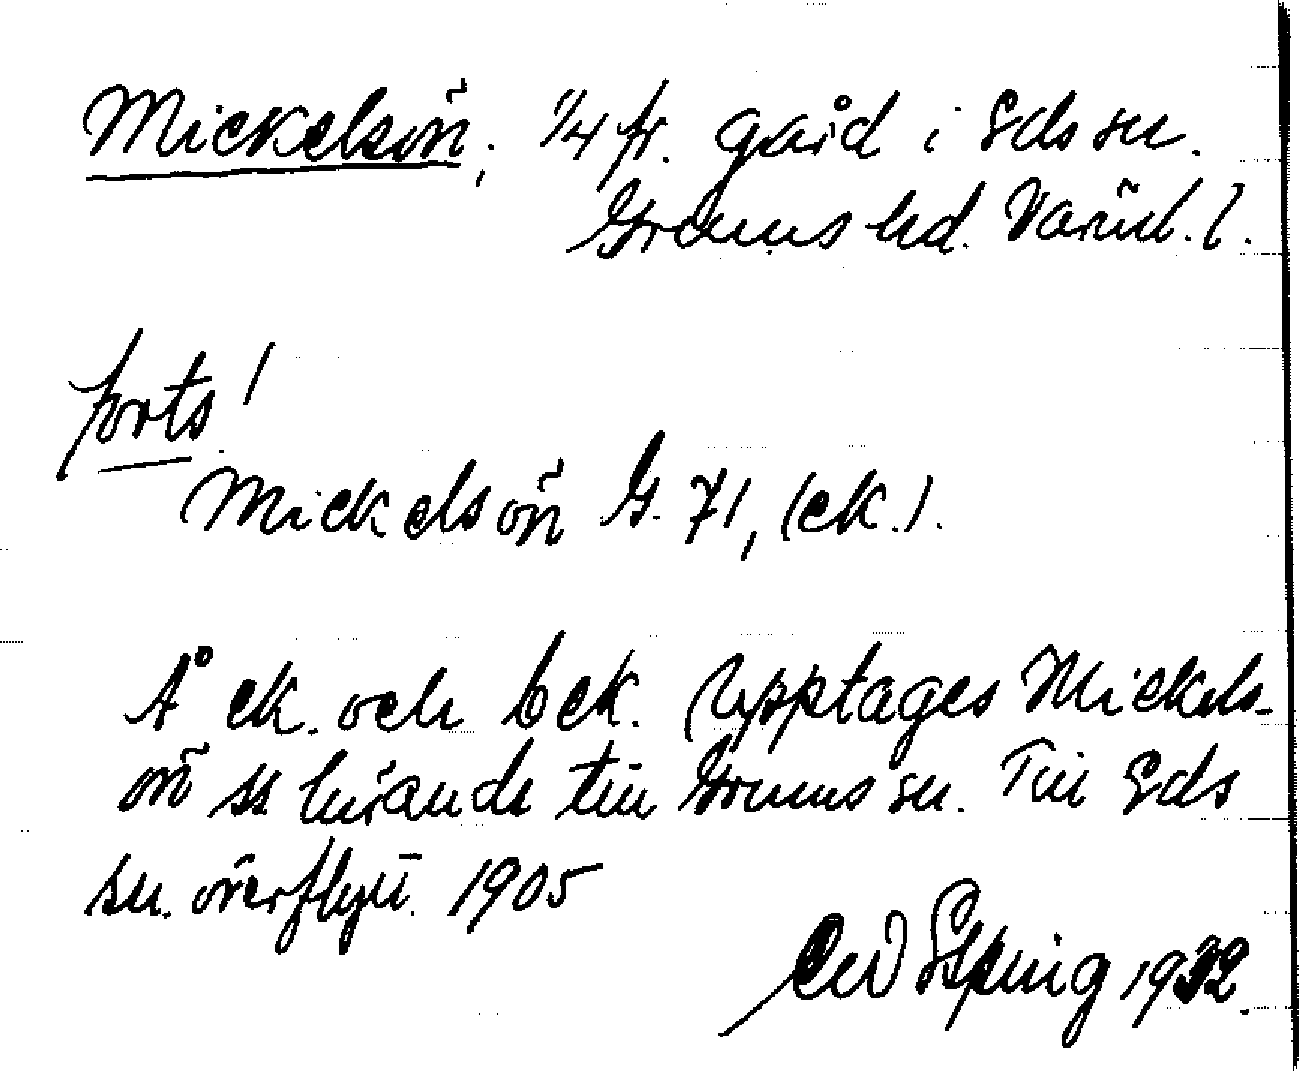 Mickelsön; 1/4 fr. gård i Eds sn.
Grums hd. Värml. l.
forts!
Mickelsön G. 71, (ek.).
Å ek. och bek. Upptages Mickels-
ön ss hörande till Grums sn. Till Eds
sn. överflytt. 1905
1932.